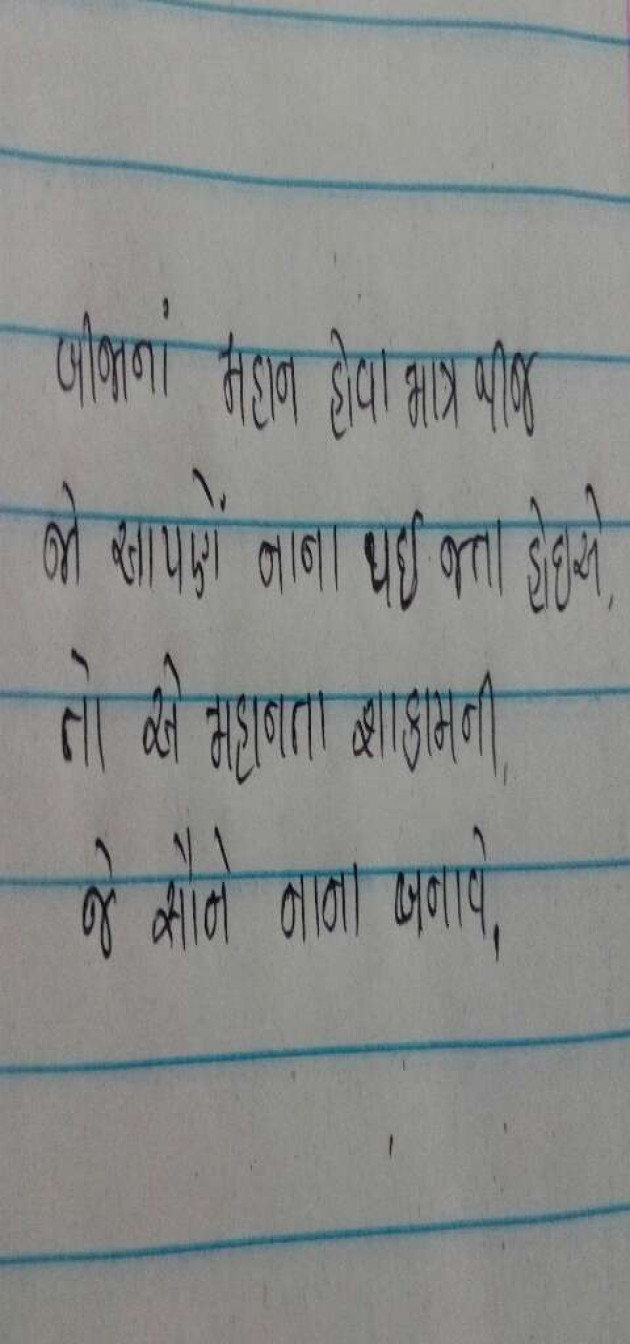 બીજાનાં મહાન હોવા માત્ર થીજ
જો આપણેં નાના થઈ જતા હોઇએ,
તો એ મહાનતા શાકામની,
જે સૌને નાના બનાવે,